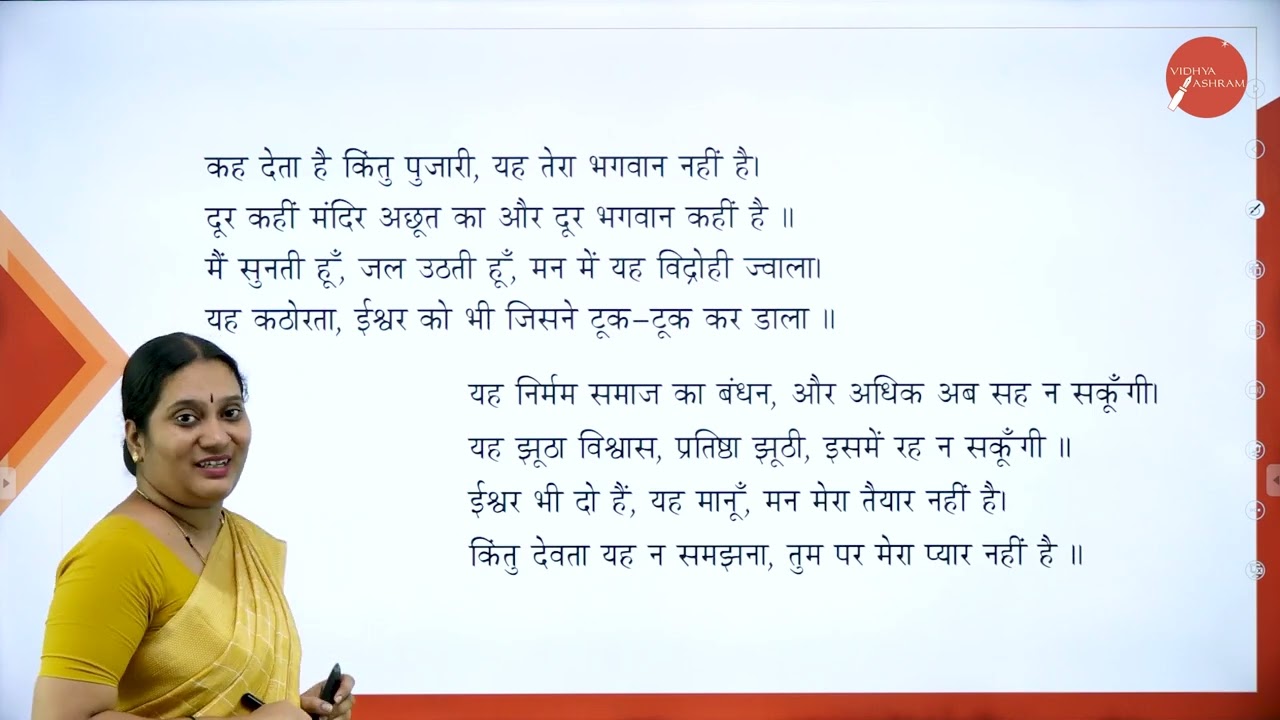 VIDHYA
ASHRAM
कह देता है किंतु पुजारी, यह तेरा भगवान नहीं है।
दूर कहीं मंदिर अछूत का और दूर भगवान कहीं है ॥
मैं सुनती हूँ, जल उठती हूँ, मन में यह विद्रोही ज्वाला।
यह कठोरता, ईश्वर को भी जिसने टूक–टूक कर डाला ॥
यह निर्मम समाज का बंधन, और अधिक अब सह न सकूँगी।
यह झूठा विश्वास, प्रतिष्ठा झूठी, इसमें रह न सकूँगी ॥
ईश्वर भी दो हैं, यह मानूँ, मन मेरा तैयार नहीं है।
किंतु देवता यह न समझना, तुम पर मेरा प्यार नहीं है ॥